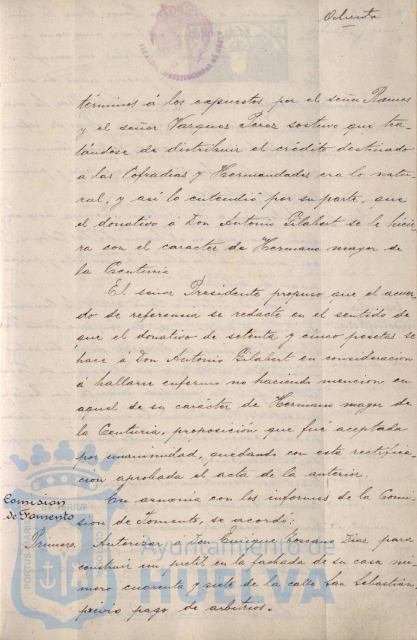 Ochenta
términos á los expuestos por el señor Ramos
y el señor Vazquez Perez sostuvo que tra
tándose de distribuir el crédito destinado
á las Cofradías y Hermandades era lo natu
ral, y así lo entendió por su parte, que
el donativo á Don Antonio Gilabert se le hicie
ra con el caracter de Hermano mayor de
la Centuria
El señor Presidente propuso que el acuer
do de referencia se redacte en el sentido de
que el donativo de setenta y cinco pesetas se
hace á Don Antonio Gilabert en consideracion
á hallarse enfermo no haciendo mencion en
aquel de su carácter de Hermano mayor de
la Centuria, proposición que fué aceptada
por unanimidad, quedando con esta rectifica
ción aprobada el acta de la anterior.
Comision
de Fomento
En armonia con los informes de la Comi
sion de Fomento, se acordó:
Primero. Autorizar á Don Enrique Toscano Diaz para
construir un pretil en la fachada de su casa nú
mero cuarenta y siete de la calle San Sebastian,
previo pago de arbitrios.
Ayuntamiento de
HUELVA